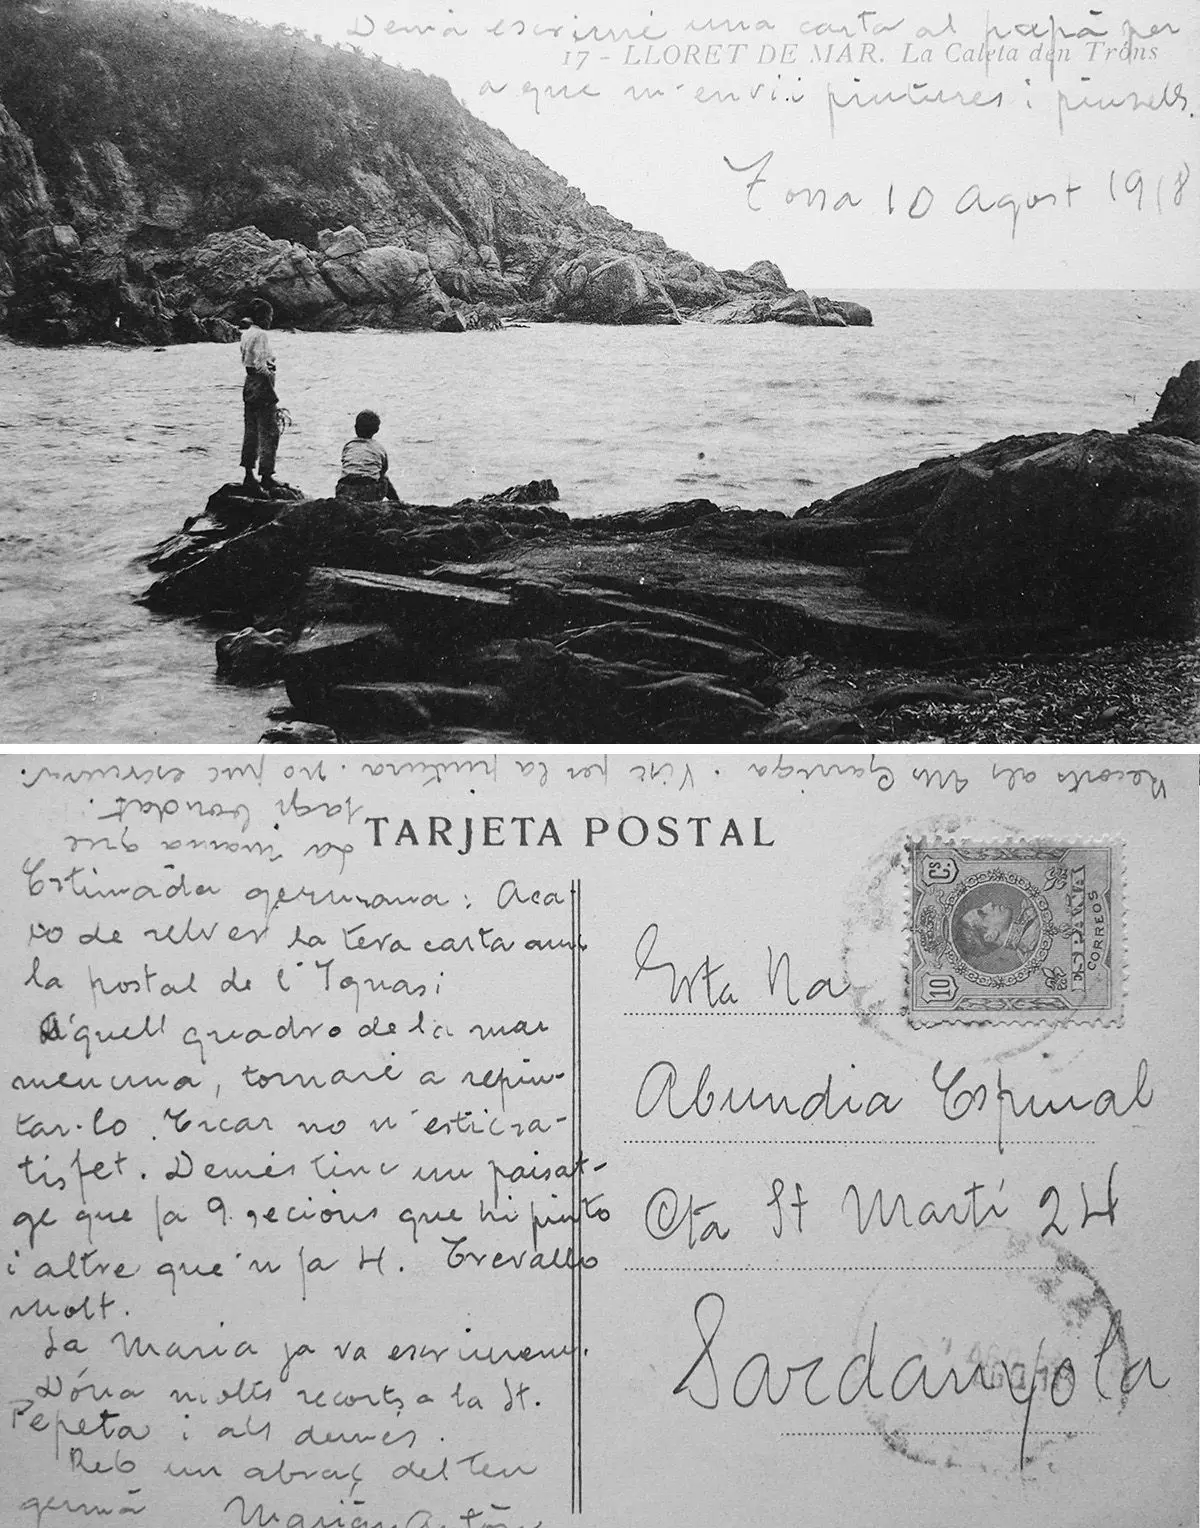 Demá escriuré una carta al papá per
17 - LLORET DE MAR. La Caleta den Tróns
a que m'envii pintures i pinsells.
Tossa 10 Agost 1918
Recorts als Ars Garriga. Visc per la pintura. no puc escriurer.
La mama que
fagi bondat.
TARJETA POSTAL
Estimada germana: Aca
vo de rebrer la teva carta amb
la postal de l'Ignasi
Aquell quadro de la mar
mencuna, tornaré a repin-
tar-lo. Encar no n'estic sa-
tisfet. Demés tinc un paisat-
ge que fa 9 secions que hi pinto
i altre que'n fa 4. Trevallo
molt.
La Maria ja va escriurem.
Dóna molts recorts a la St.
Pepeta i als demés.
Reb un abraç del teu
germá Mariàn Antón
ESPAÑA
CORREOS
10 Cs.
Srta Na
Abundia Espinal
Cta St Martí 24
Sardányola